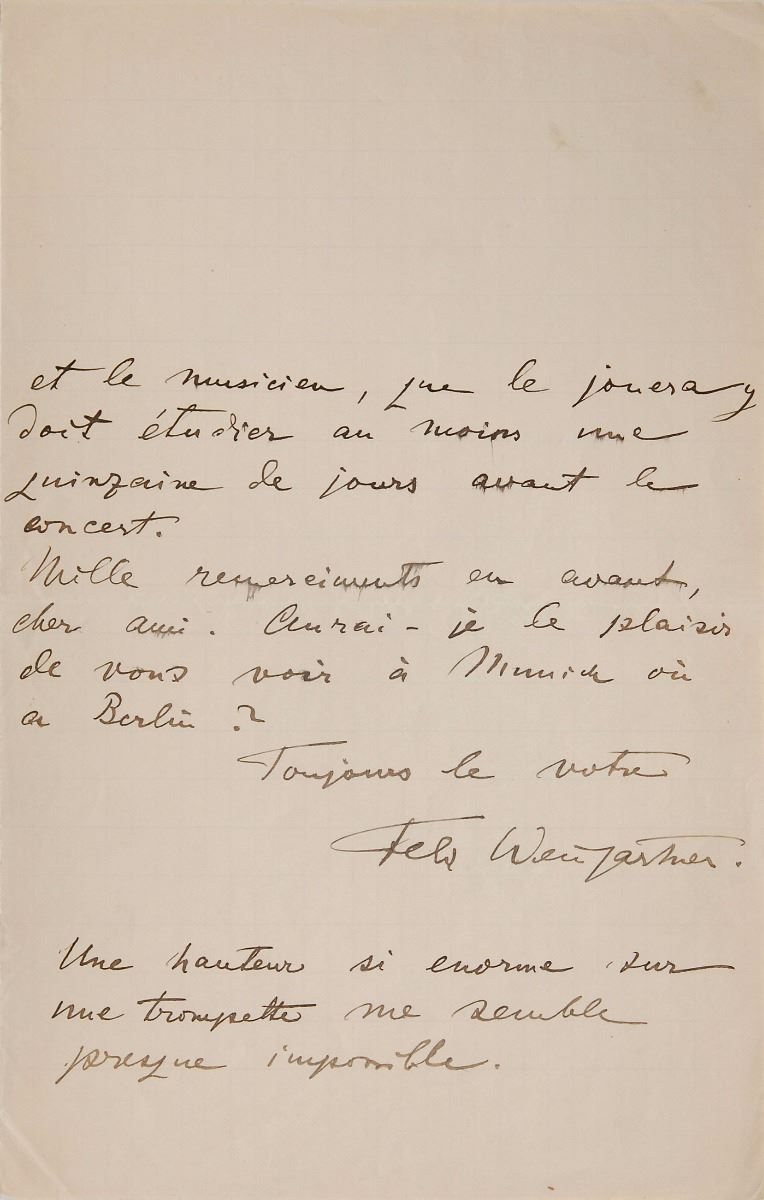 et le musicien, que le jouera y
doit étudier au moins une
quinzaine de jours avant le
concert.
Mille remerciments en avant,
cher ami. Aurai-je le plaisir
de vous voir à Munich où
a Berlin ?
Toujours le votre
Felix Weingartner.
Une hauteur si enorme sur
une trompette me semble
presque impossible.